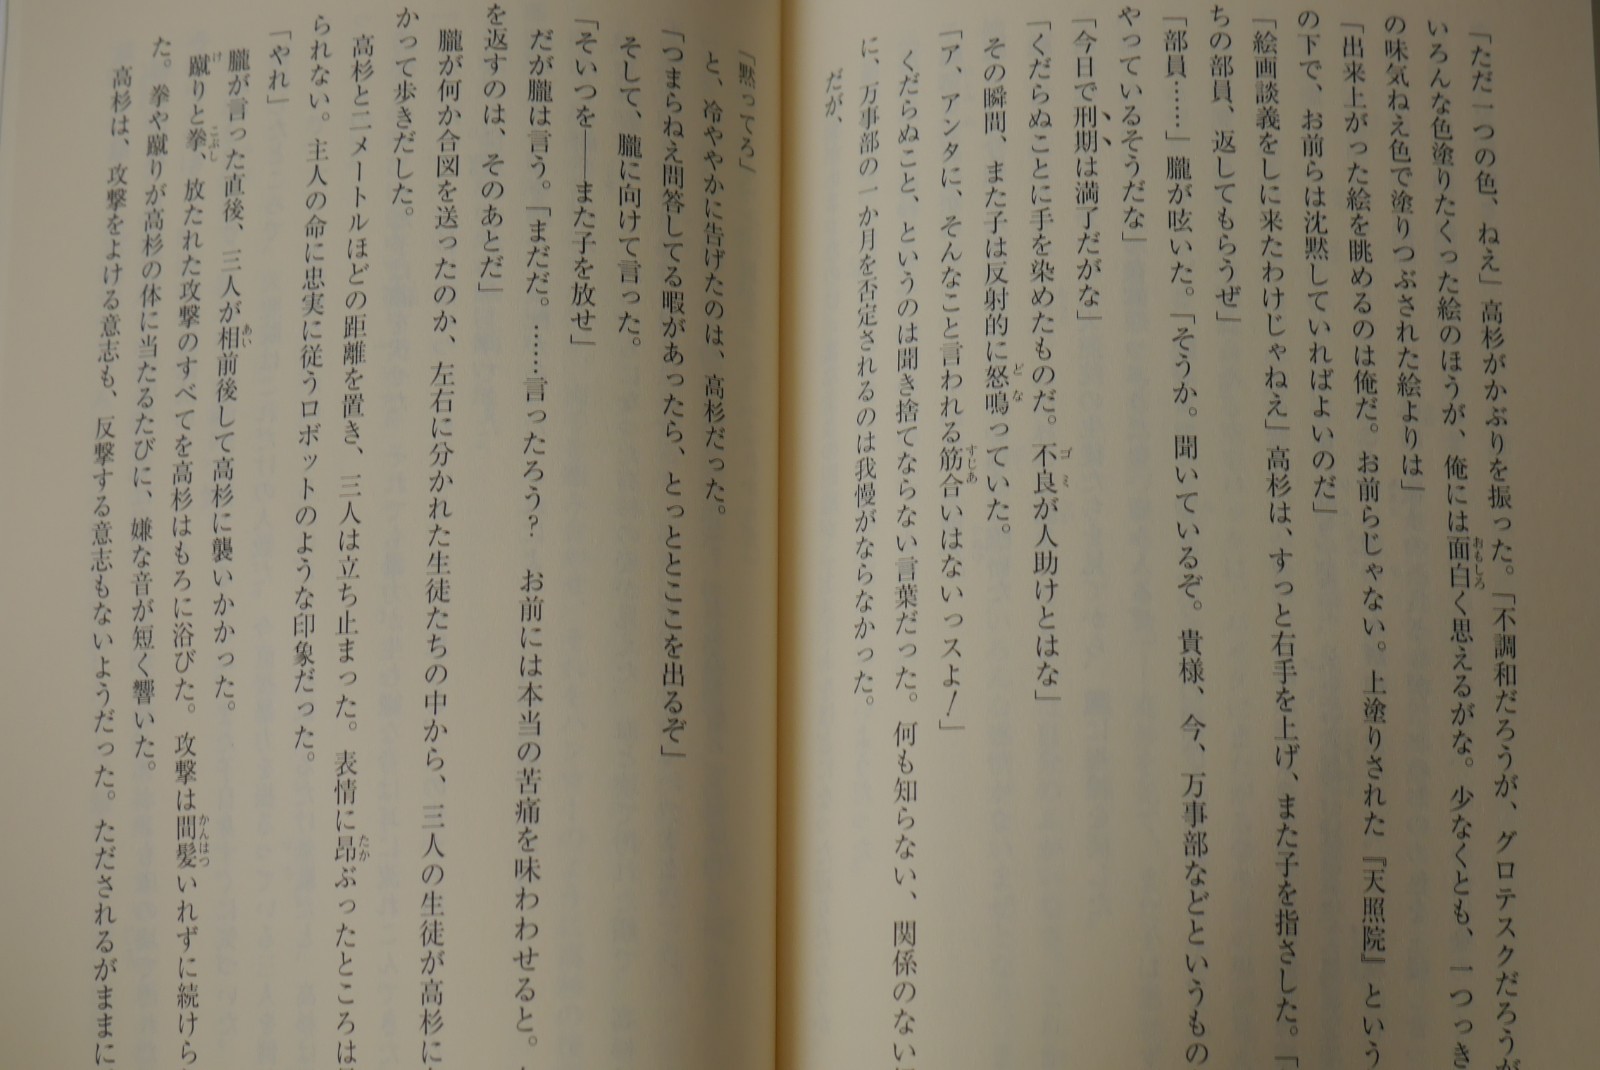 「ただ一つの色、ねえ」高杉がかぶりを振った。「不調和だろうが、グロテスクだろうが
いろんな色塗りたくった絵のほうが、俺には面白く思えるがな。少なくとも、一つっき
の味気ねえ色で塗りつぶされた絵よりは」
「出来上がった絵を眺めるのは俺だ。お前らじゃない。上塗りされた『天照院』という
の下で、お前らは沈黙していればよいのだ」
「絵画談義をしに来たわけじゃねえ」高杉は、すっと右手を上げ、また子を指さした。「
ちの部員、返してもらうぜ」
「部員……」朧が呟いた。「そうか。聞いているぞ。貴様、今、万事部などというもの
やっているそうだな」
「今日で刑期は満了だがな」
「くだらぬことに手を染めたものだ。不良が人助けとはな」
その瞬間、また子は反射的に怒鳴っていた。
「ア、アンタに、そんなこと言われる筋合いはないっスよ!」
くだらぬこと、というのは聞き捨てならない言葉だった。何も知らない、関係のない
に、万事部の一か月を否定されるのは我慢がならなかった。
だが、
「黙ってろ」
と、冷ややかに告げたのは、高杉だった。
「つまらねえ問答してる暇があったら、とっととここを出るぞ」
そして、朧に向けて言った。
「そいつを――また子を放せ」
だが朧は言う。「まだだ。……言ったろう? お前には本当の苦痛を味わわせると。
を返すのは、そのあとだ」
朧が何か合図を送ったのか、左右に分かれた生徒たちの中から、三人の生徒が高杉に
かって歩きだした。
高杉と二メートルほどの距離を置き、三人は立ち止まった。表情に昂ぶったところは
られない。主人の命に忠実に従うロボットのような印象だった。
「やれ」
朧が言った直後、三人が相前後して高杉に襲いかかった。
蹴りと拳、放たれた攻撃のすべてを高杉はもろに浴びた。攻撃は間髪いれずに続けら
た。拳や蹴りが高杉の体に当たるたびに、嫌な音が短く響いた。
高杉は、攻撃をよける意志も、反撃する意志もないようだった。たださるるがままに